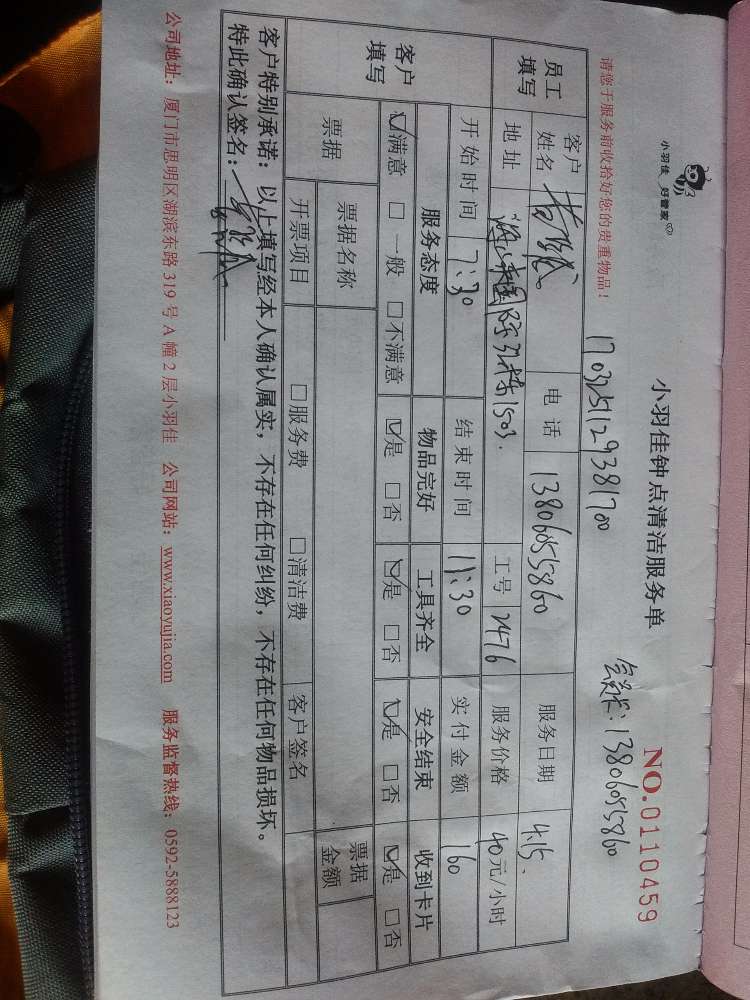 小羽佳 好管家
小羽佳钟点清洁服务单
会员卡:13806055860
NO.0110459
请您于服务前收拾好您的贵重物品!
1703251129381700
员工填写 客户姓名 电话 13806055860 服务日期 4.15.
地址 国际 1503. 工号 2476 服务价格 40元/小时
客户填写 开始时间 7:30 结束时间 11:30 实付金额 160
服务态度 物品完好 工具齐全 安全结束 收到卡片
☑满意 □一般 □不满意 ☑是 □否 ☑是 □否 ☑是 □否 ☑是 □否
票据 票据名称 票据金额
开票项目 □服务费 □清洁费 客户签名
客户特别承诺:以上填写经本人确认属实,不存在任何纠纷,不存在任何物品损坏。
特此确认签名:
公司地址:厦门市思明区湖滨东路 319 号 A 幢 2 层小羽佳 公司网站:www.xiaoyujia.com 服务监督热线:0592-5888123